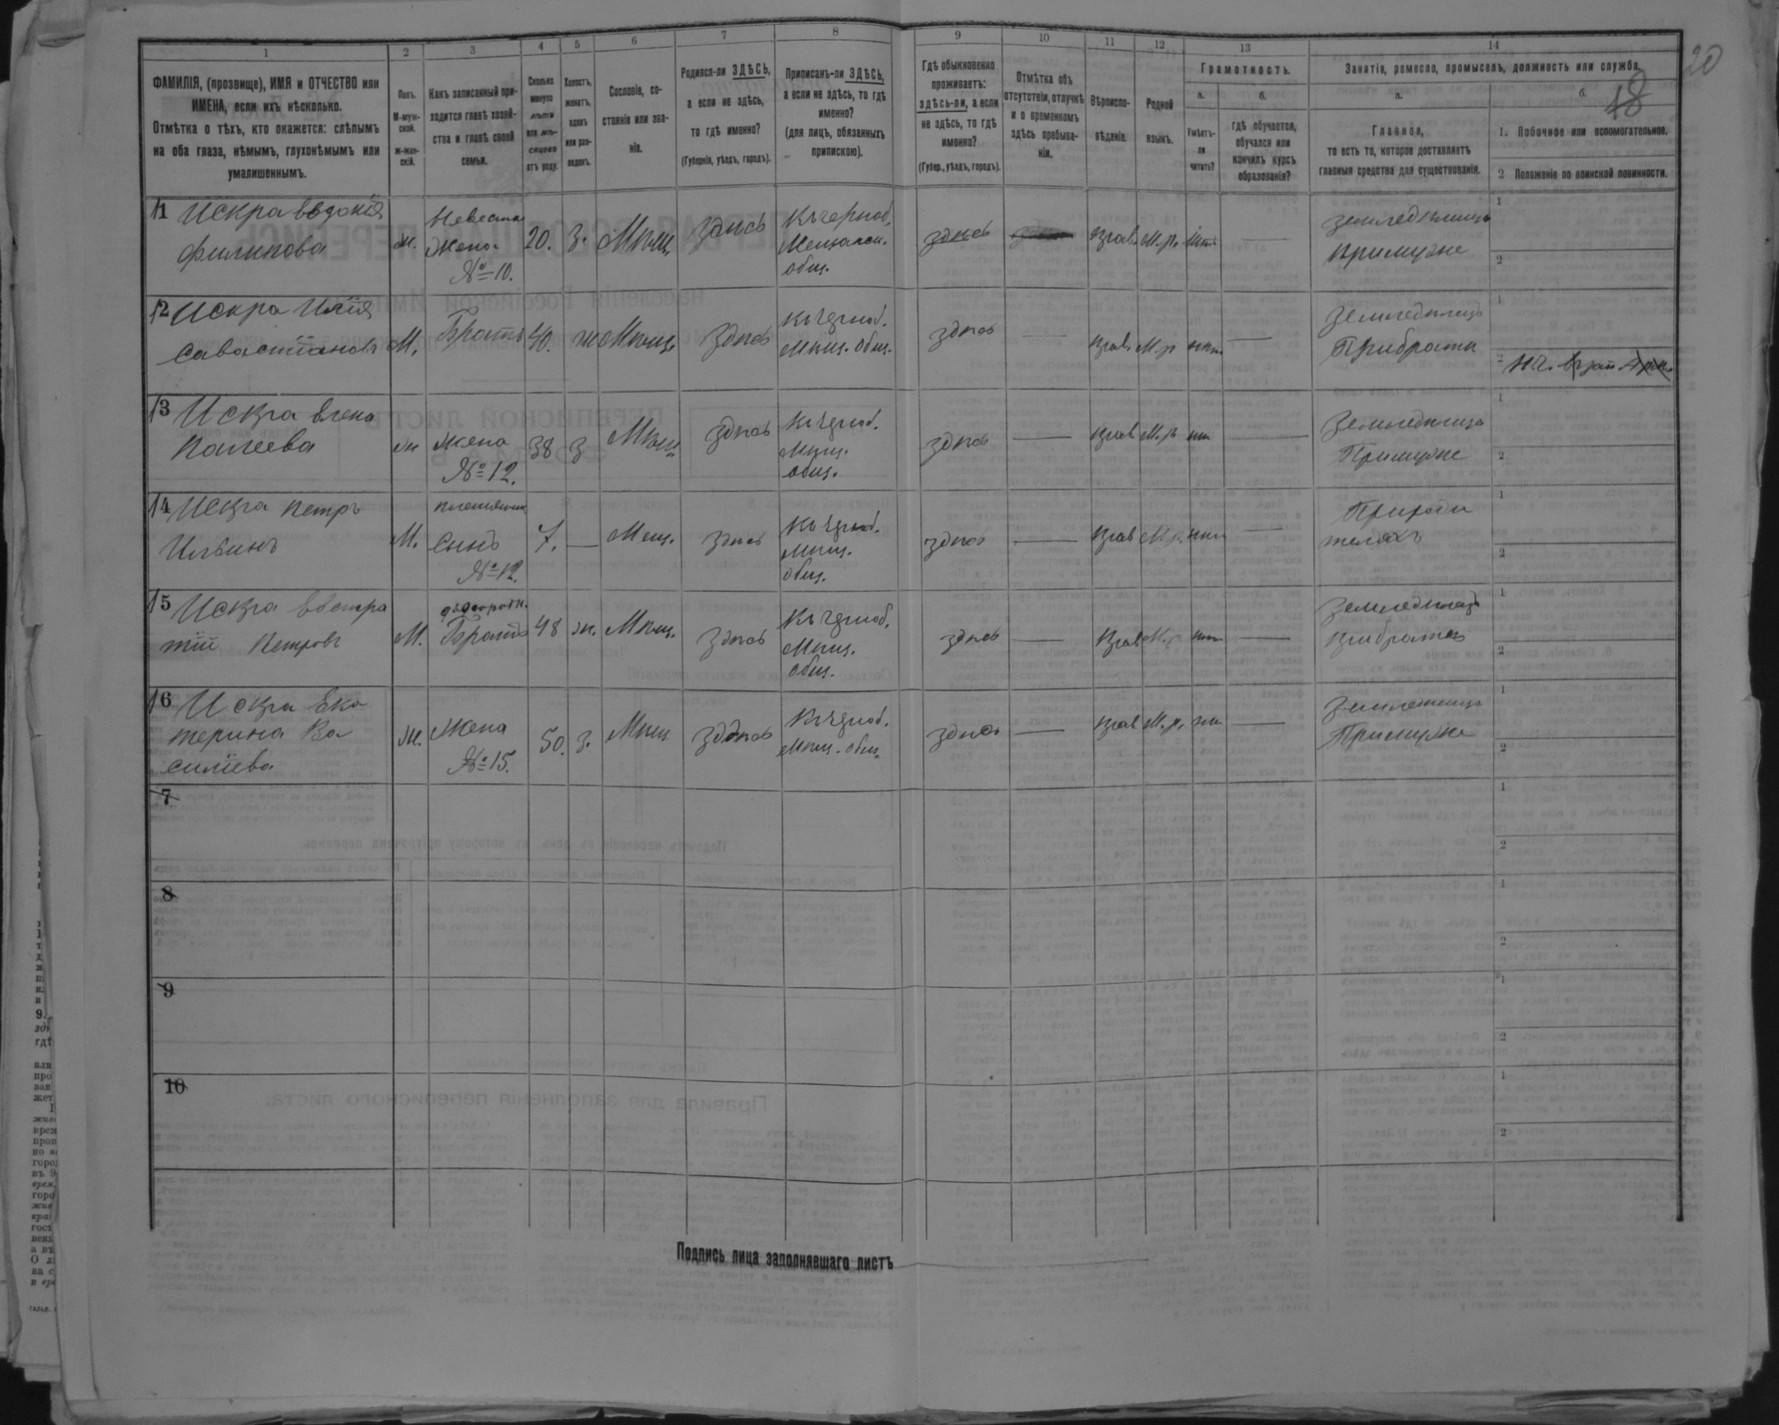 1 2 3 4 5 6 7 8 9 10 11 12 13 14
20
18
ФАМИЛІЯ, (прозвище), ИМЯ и ОТЧЕСТВО или
ИМЕНА, если ихъ нѣсколько.
Отмѣтка о тѣхъ, кто окажется: слѣпымъ
на оба глаза, нѣмымъ, глухонѣмымъ или
умалишеннымъ.
Полъ.
М-муж-
ской.
ж-жен-
скій.
Какъ записанный при-
ходится главѣ хозяй-
ства и главѣ своей
семьи.
Сколько
минуло
лѣтъ
или мѣ-
сяцевъ
отъ роду.
Холостъ,
женатъ,
вдовъ
или раз-
веденъ.
Сословіе, со-
стояніе или зва-
ніе.
Родился-ли ЗДѢСЬ,
а если не здѣсь,
то гдѣ именно?
(Губернія, уѣздъ, городъ).
Приписанъ-ли ЗДѢСЬ,
а если не здѣсь, то гдѣ
именно?
(для лицъ, обязанныхъ
припискою).
Гдѣ обыкновенно
проживаетъ:
здѣсь-ли, а если
не здѣсь, то гдѣ
именно?
(Губер., уѣздъ, городъ).
Отмѣтка объ
отсутствіи, отлучкѣ
и о временномъ
здѣсь пребыва-
ніи.
Вѣроиспо-
вѣданіе.
Родной
языкъ.
Грамотность.
а.
Умѣетъ-
ли
читать?
б.
гдѣ обучается,
обучался или
кончилъ курсъ
образованія?
Занятіе, ремесло, промыселъ, должность или служба.
а.
Главное,
то есть то, которое доставляетъ
главныя средства для существованія.
б.
1. Побочное или вспомогательное.
2 Положеніе по воинской повинности.
11 Искра Евдокія
Филипова
ж.
Невестка
Жена
№ 10.
20. з. Мѣщ. здѣсь
Къ черноб.
Мещанск.
общ.
здѣсь
Прав. М.р. нѣтъ —
земледѣлица
При мужѣ
1
2
12 Искра Илія
Савастіановъ
М. Братъ 40. ж Мѣщ. здѣсь
Къ Черноб.
Мѣщ. общ.
здѣсь — Прав. М.р нѣтъ —
Земледѣлецъ
При братѣ
1
2
13 Искра Елена
Палеева
ж
жена
№ 12.
38 з Мѣщ. здѣсь
Къ Черноб.
Мѣщ.
общ.
здѣсь — Прав М.р нѣтъ —
Земледѣлица
При мужѣ
1
2
14 Искра Петръ
Ильинъ
М.
племянник
Сынъ
№ 12.
7. — Мѣщ. здѣсь
Къ Черноб.
Мѣщ.
общ.
здѣсь — Прав М.р. нѣтъ —
При роди
теляхъ
1
2
15 Искра Евстра
тій Петровъ
М.
двоюродн.
Братъ
48 ж. Мѣщ. здѣсь
Къ Черноб.
Мѣщ.
общ.
здѣсь — Прав М.р нѣтъ —
Земледѣлецъ
При братѣ
1
2
16 Искра Ека
терина Ва
силіева
ж.
Жена
№ 15.
50. з. Мѣщ здѣсь
Къ Черноб.
Мѣщ. общ.
здѣсь — Прав М.р. нѣтъ —
Земледѣлица
При мужѣ
1
2
7
1
2
8
1
2
9
1
2
10
1
2
Подпись лица заполнявшаго листъ